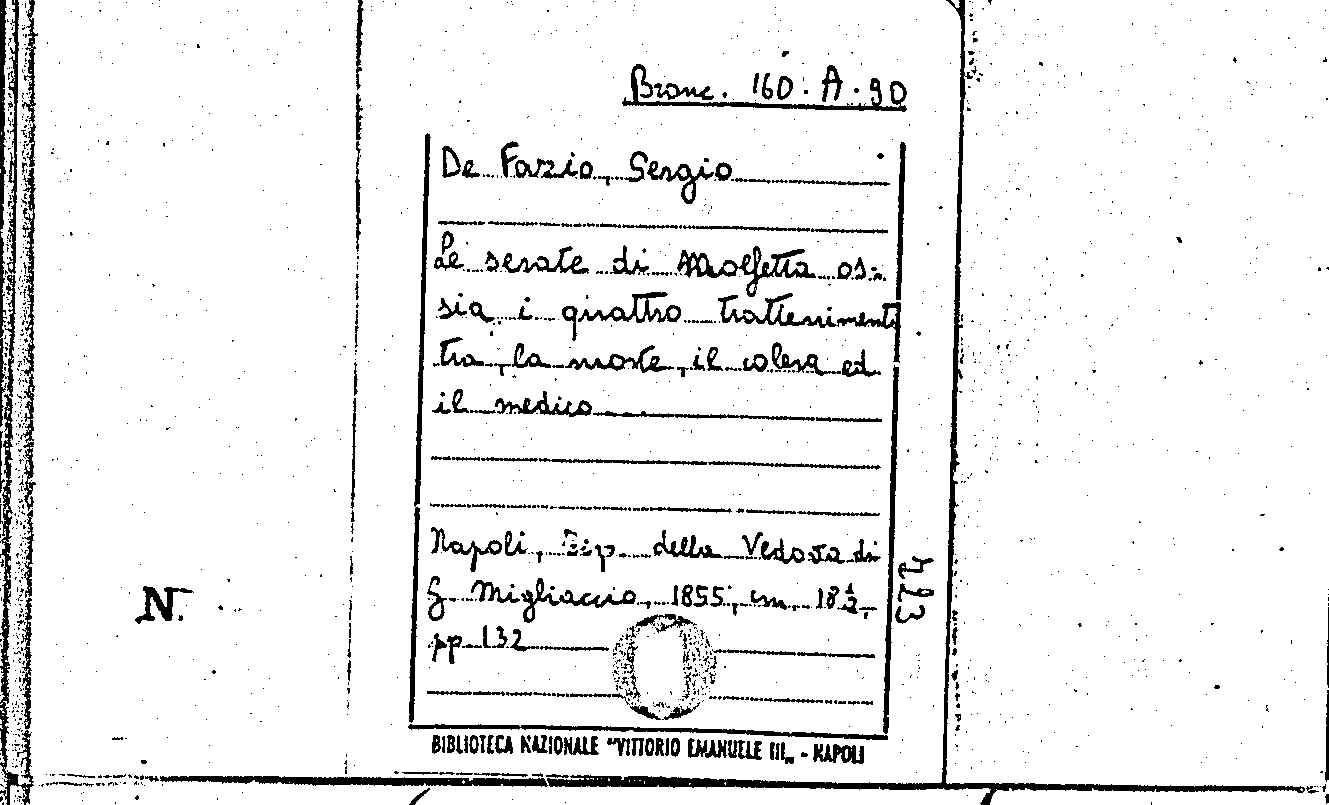 Branc. 160. A. 90
De Fazio, Sergio
Le serate di Molfetta os=
sia i quattro trattenimenti
tra la morte, il colera ed
il medico
Napoli, Tip. della Vedova di
G. Migliaccio, 1855, cm. 18 1/2,
pp 132
423
N.
BIBLIOTECA NAZIONALE "VITTORIO EMANUELE III„ - NAPOLI